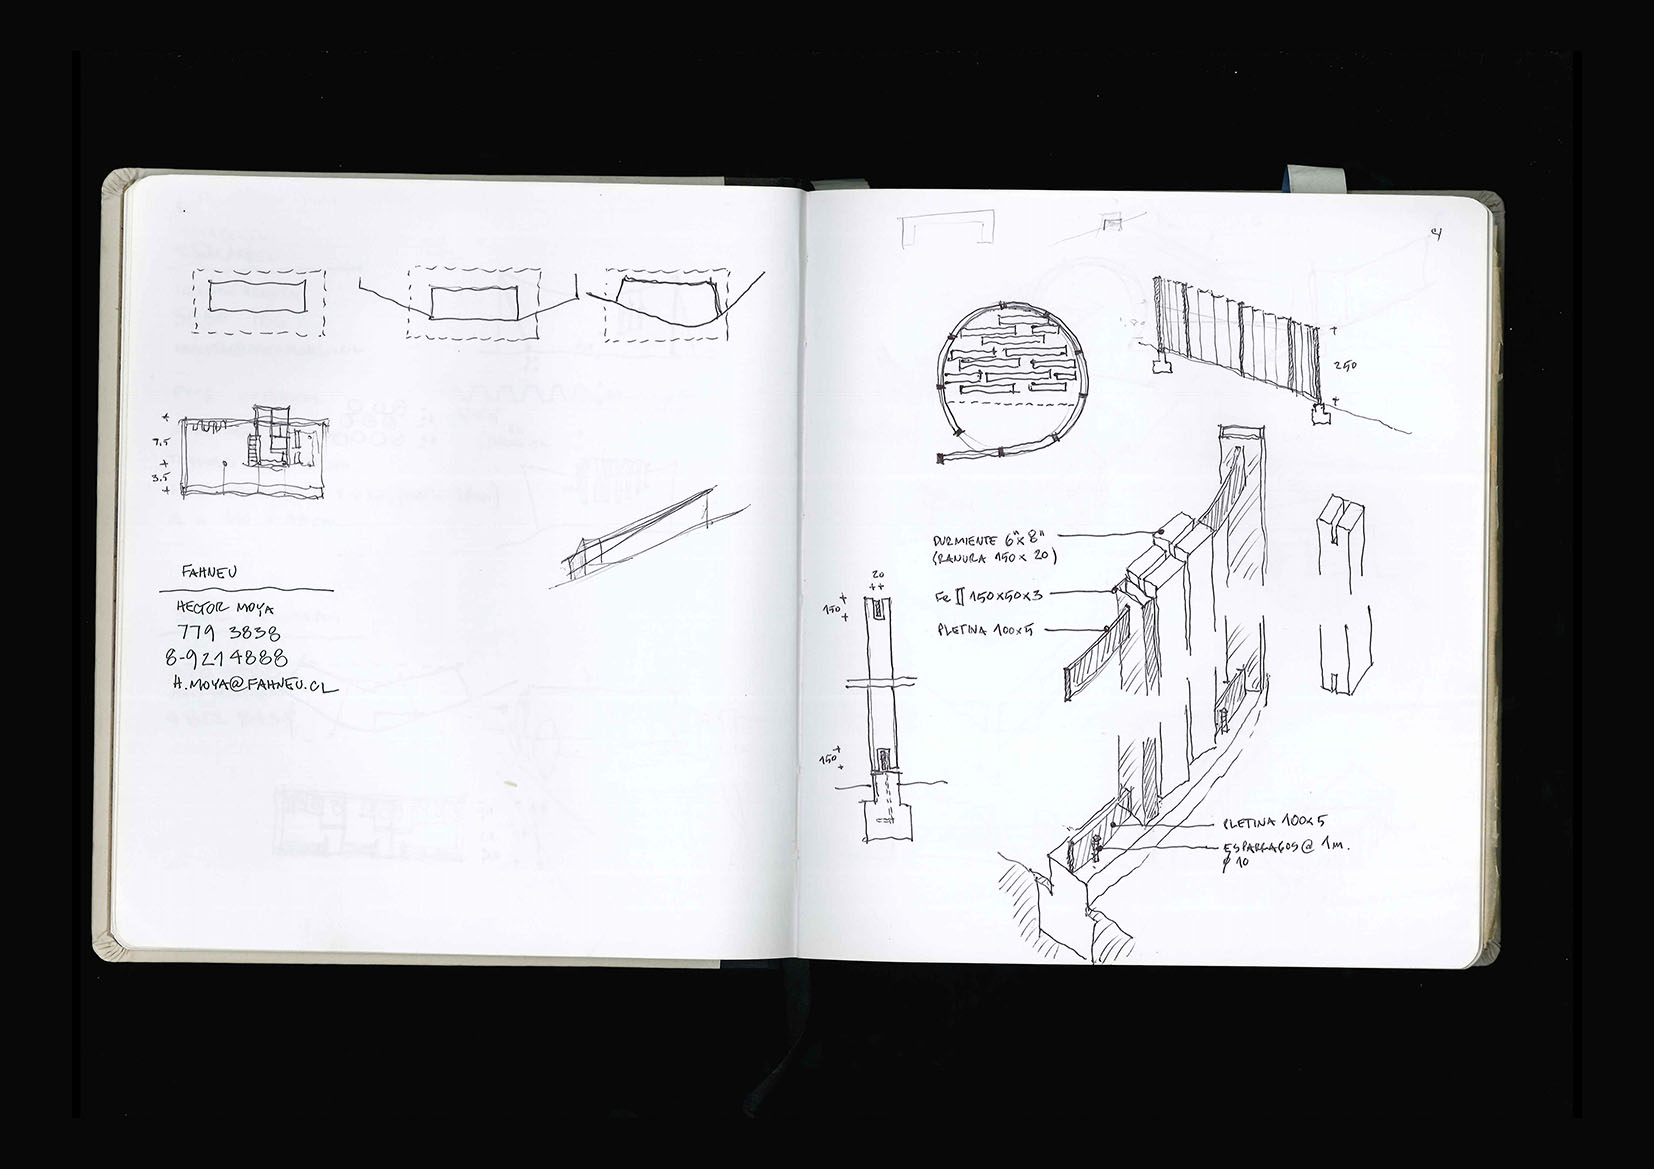 7,5
3.5
FAHNEU
HECTOR MOYA
779 3838
8-9214888
H.MOYA@FAHNEU.CL
250
DURMIENTE 6"x8"
(RANURA 150x20)
Fe 150x50x3
PLETINA 100x5
20
150
150
PLETINA 100x5
ESPARRAGOS@ 1m.
φ10